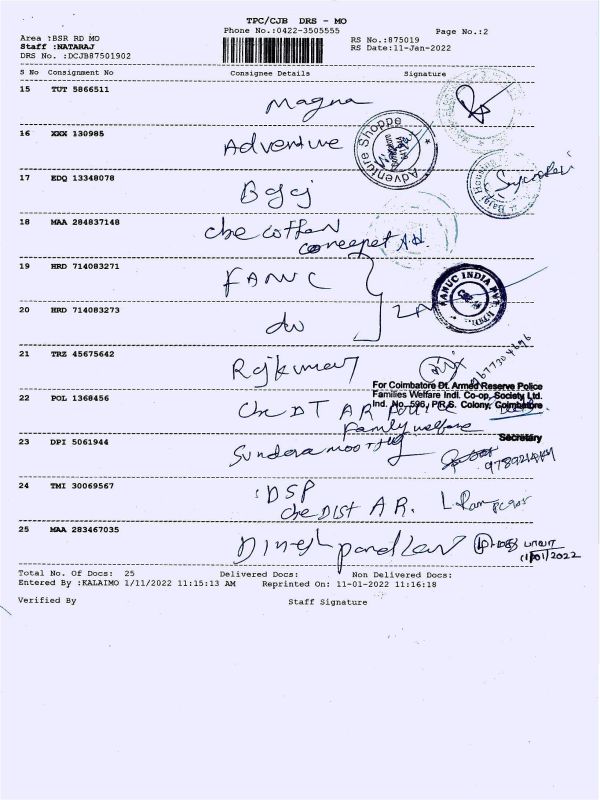 TPC/CJB DRS - MO
Phone No.:0422-3505555 Page No.:2
Area :BSR RD MO RS No.:875019
Staff :NATARAJ RS Date:11-Jan-2022
DRS No. :DCJB87501902
S No Consignment No Consignee Details Signature
15 TUT 5866511
Magna
16 XXX 130985
Adventure
Adventure Shoppe
17 EDQ 13348078
18 MAA 284837148
19 HRD 714083271
FANUC
FANUC INDIA PVT
20 HRD 714083273
do
21 TRZ 45675642
Rajkumar
22 POL 1368456
For Coimbatore Dt. Armed Reserve Police
Families Welfare Indl. Co-op, Society Ltd.
Ind. No. 596, P.R.S. Colony, Coimbatore
Che DT A R Police
Family welfare
Secretary
23 DPI 5061944
Sundera moorthy
24 TMI 30069567
DSP
che Dist A R.
25 MAA 283467035
Dinesh pandian
11/01/2022
Total No. Of Docs: 25 Delivered Docs: Non Delivered Docs:
Entered By :KALAIMO 1/11/2022 11:15:13 AM Reprinted On: 11-01-2022 11:16:18
Verified By Staff Signature